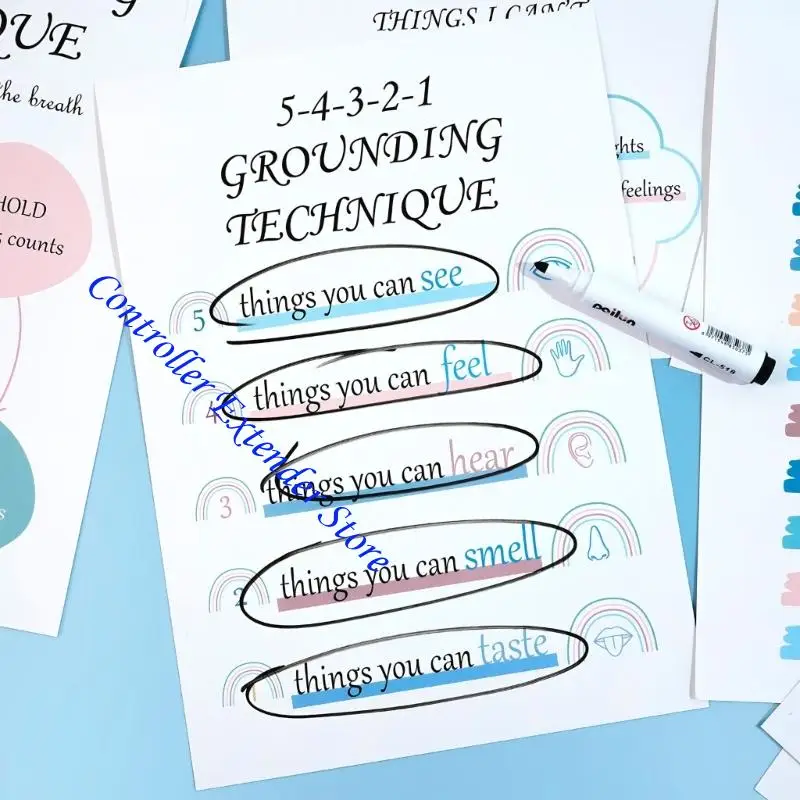 QUE
the breath
HOLD
5 counts
THINGS I CAN'T
5-4-3-2-1
GROUNDING
TECHNIQUE
5 things you can see
4 things you can feel
3 things you can hear
2 things you can smell
things you can taste
ghts
feelings
CL-518
Controller Extender Store